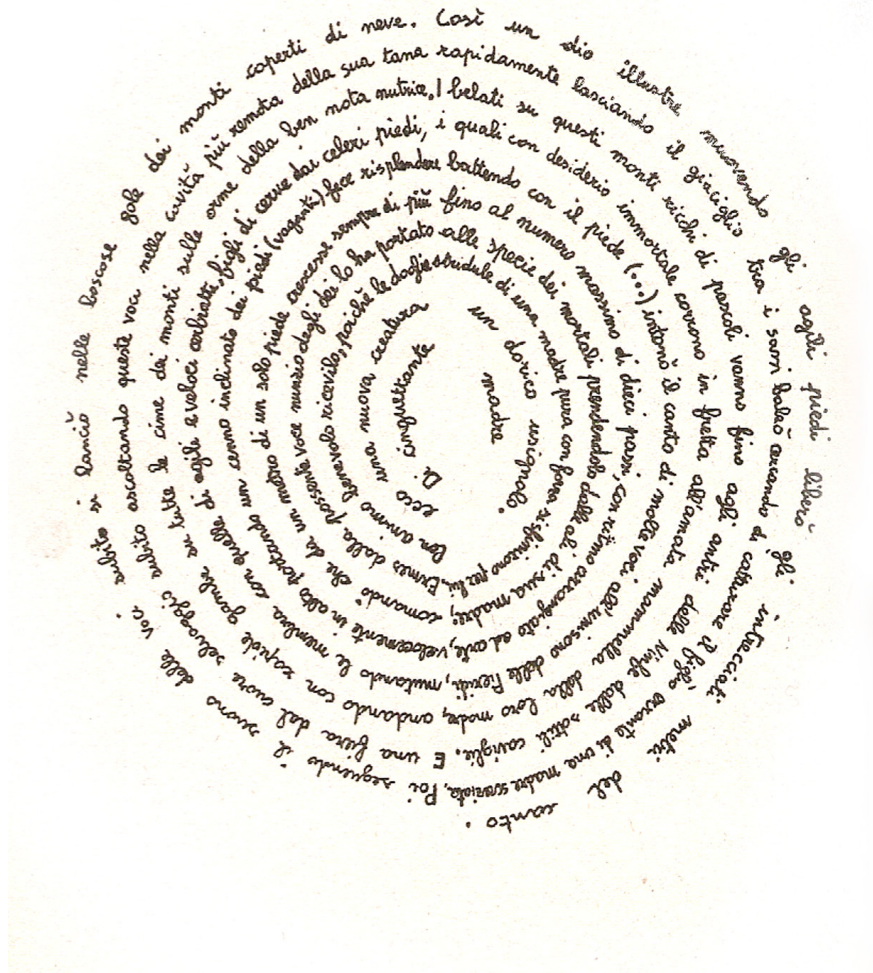 Di cinguettante madre
ecco una nuova creatura un dorico usignolo.
Con animo benevolo ricevilo, poiché le doglie stridule di una madre pura con si sfiniscono per lui.
Ermes dalla possente voce nunzio degli dei lo ha portato alle specie dei mortali prendendolo dalle ali di sua madre,
comandò che da un metro di un solo piede crescesse sempre di più fino al numero massimo di dieci passi, con ritmo arrangiato ad arte,
velocemente in alto portando un cenno inclinato dei piedi (vaganti) fece risplendere battendo con il piede (...) intonò il canto di molte voci all'unisono delle Pieridi,
mutando le membra con quelle di agili e veloci cerbiatti, figli di cerve dai celeri piedi, i quali con desiderio immortale corrono in fretta all'amata mammella della loro madre,
andando con rapide gambe su tutte le cime dei monti sulle orme della ben nota nutrice. I belati su questi monti ricchi di pascoli vanno fino agli antri delle Ninfe dalle sottili caviglie.
E una fiera dal cuore selvaggio subito ascoltando queste voci nella cavità più remota della sua tana rapidamente lasciando il giaciglio tra i sassi balzò cercando di catturare il figlio errante di una madre screziata.
Poi seguendo il suono della voci subito si lanciò nelle boscose gole dei monti coperti di neve. Così un dio illustre muovendo gli agili piedi liberò gli intrecciati metri del canto.